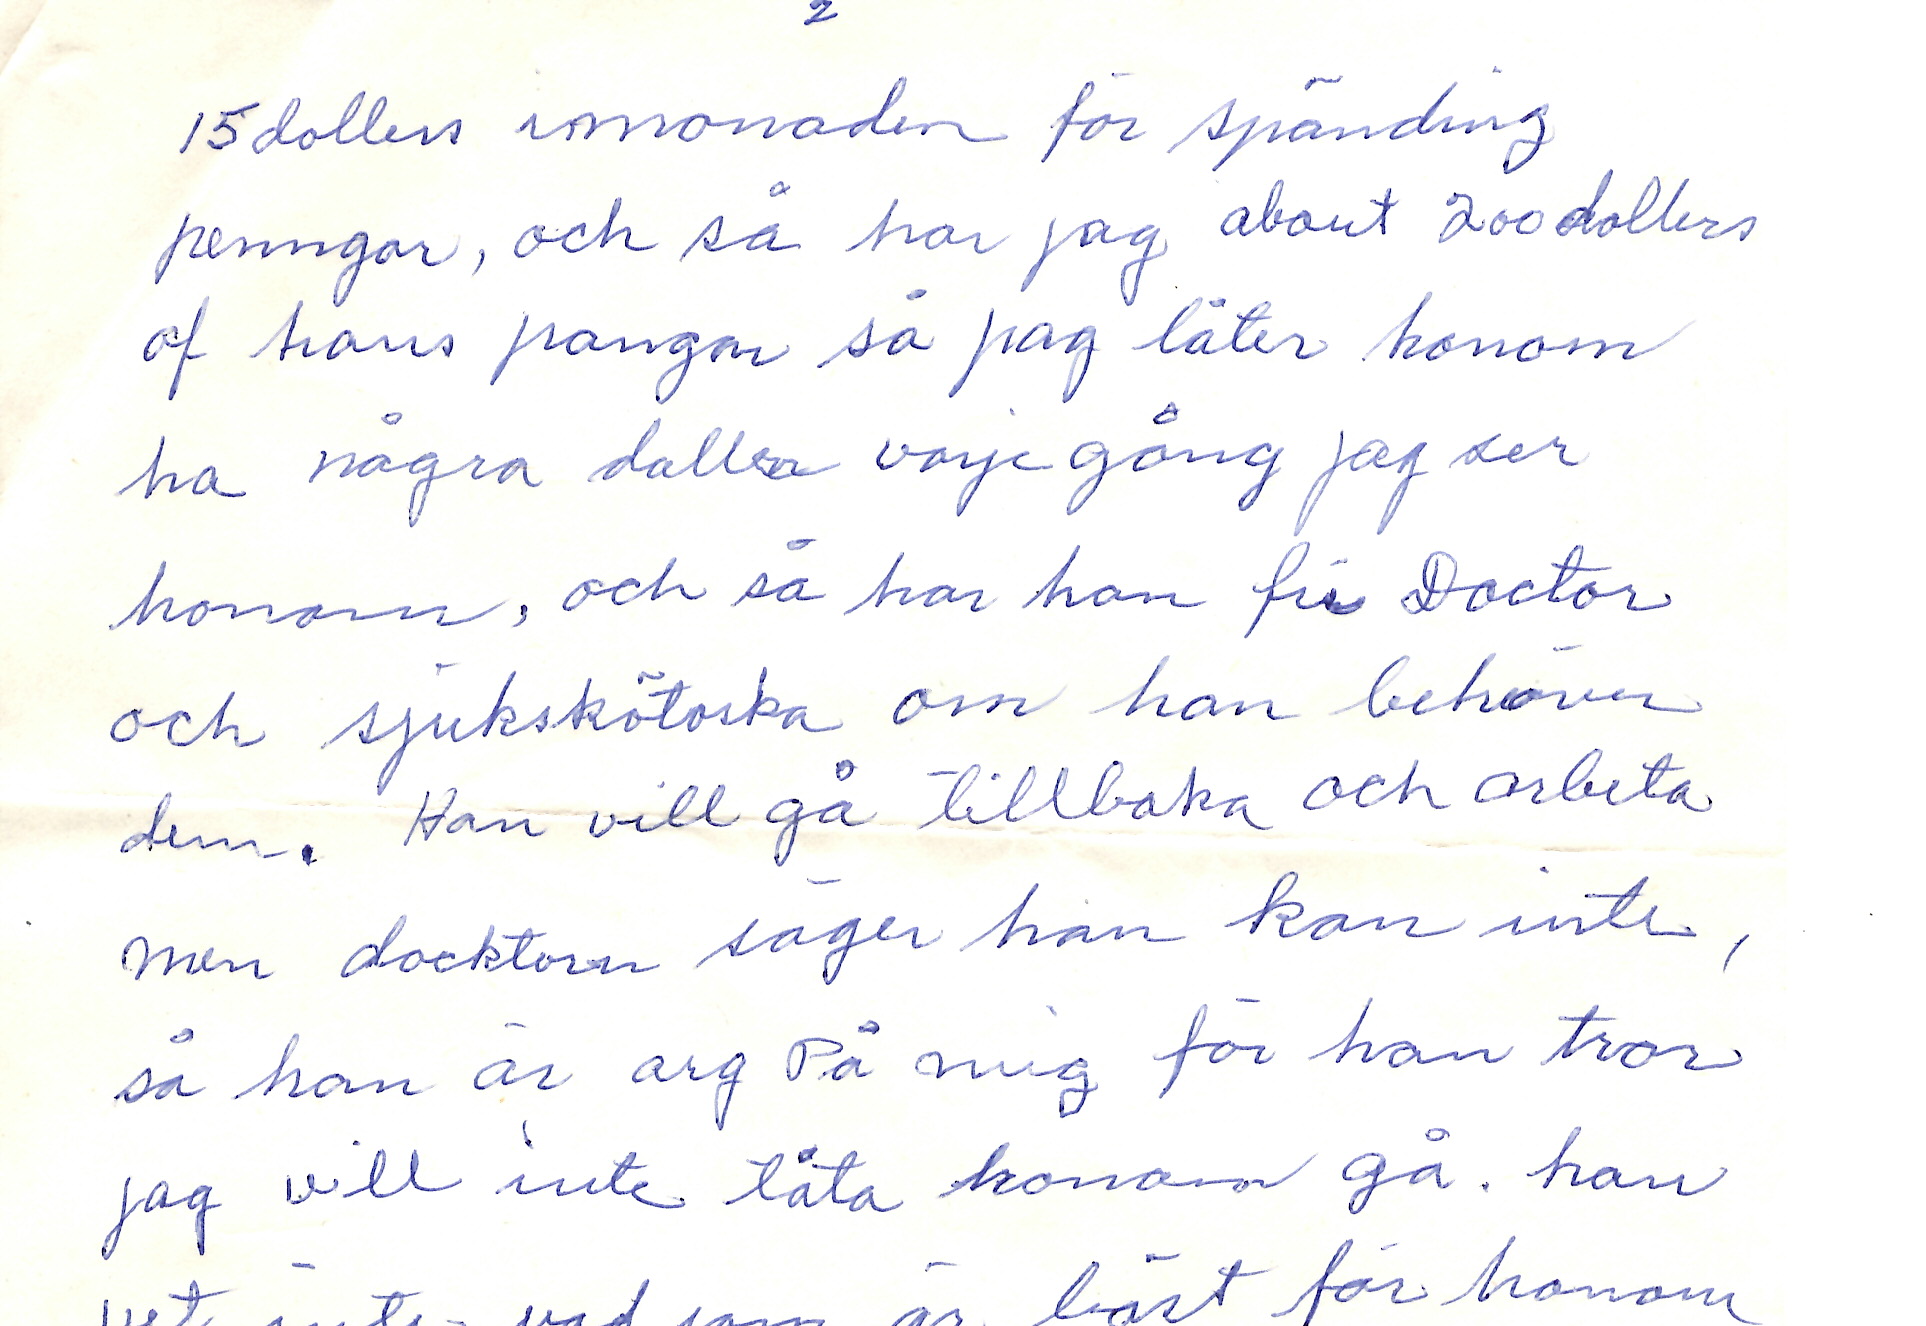 2
15 dollers i monaden för spänding
penngar, och så har jag about 200 dollers
of hans pangar så jag låter honom
ha några dollar varje gång jag ser
honom, och så har han fri Doctor
och sjukskötoska om han behöver
dem. Han vill gå tillbaka och arbeta
men docktorn säger han kan inte,
så han är arg På mig för han tror
jag vill inte låta honom gå. han
vet inte vad som är bäst för honom